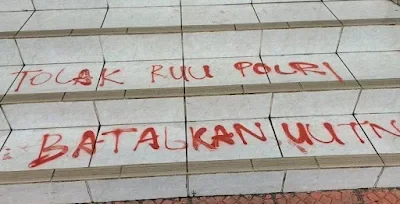 TOLAK RUU POLRI
BATALKAN UU TN